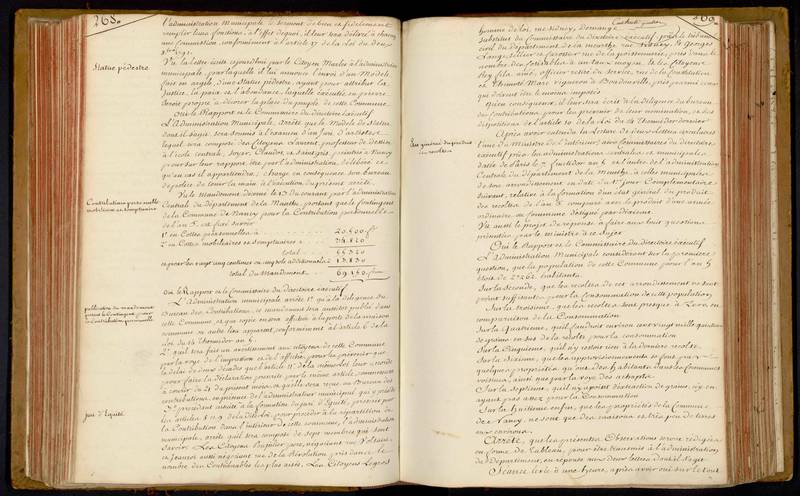 268.
l'administration Municipale le serment de bien et fidelement
remplir leurs fonctions, à l'effet dequoi, il leur sera délivré à chacun
une Commission, conformément à l'article 17 de la Loi du deux
Statue pédestre.
Vu la lettre écrite aujourd'hui par le Citoyen Marlié à l'administration
municipale, par laquelle il lui annonce l'envoi d'un Modele
fait en argile, d'une statue pédestre, ayant pour attribut la
Justice, la paix et l'abondance, laquelle exécutée en pierre
seroit propre à décorer la place du peuple de cette Commune
Oui le Rapport et le Commissaire du directoire exécutif
L'Administration Municipale, arrête que le Modele de Statue
dont il s'agit, sera soumis à l'examen d'un Juri d'artistes
lequel sera composé des Citoyens Laurent, professeur de dessin
à l'école centrale, Claudot, peintres à Nancy
pour sur leur rapport être par l'administration, délibéré ce
qu'au cas il appartiendra; charge en conséquence son bureau
de police de tenir la main à l'exécution du présent arrêté.
Contributions personnelle
mobiliaire et somptuaire
Vu le Mandement décerné le 13 du courant par l'administration
Centrale du département de la Meurthe, portant que le contingent
de la Commune de Nancy pour la Contribution personnelle
de l'an 5e est fixé savoir
1° en Cottes personnelles à 20,500 fr
2° en Cottes mobiliaires et somptuaires 34,820
total 55,320
et pour les vingt cinq centimes ou cinq sols additionnels 13,830
total du Mandement 69,150 francs
publication du mandement
portant le Contingent pour
la Contribution personnelle
Oui le Rapport et le Commissaire du directoire exécutif
L'Administration municipale arrête 1° qu'à la diligence du
Bureau des Contributions, ce mandement sera imprimé publié dans
cette Commune et que copie en sera affichée à la porte de la maison
commune ou autre lieu apparent, conformément à l'article 6 de la
Loi du 14 Thermidor an 5.
2° qu'il sera fait un avertissement aux citoyens de cette Commune
par la voye de l'impression et de l'affiche, pour les prévenir que
le délai de deux décades que l'article 11 de la même loi leur accorde
pour faire la déclaration prescrite par le même article, commencera
à courir du 21 du présent mois, et qu'elle sera reçue au Bureau des
Contributions, en présence de l'administrateur municipal qui y préside
Juri d'Equité.
3° procédant ensuite à la formation du juri d'Equité, prescrit par
les articles 8 et 9 de ladite Loi, pour procéder à la répartition de
la Contribution dans l'intérieur de cette commune, l'administration
municipale, arrête qu'il sera composé de sept membres qui sont
savoir: Les Citoyens père, négociant rue Voltaire,
et Jeanroi aussi négociant rue de la Révolution, pris dans le
nombre des Contribuables les plus aisés. Les Citoyens
homme de Loi, rue Sidney,
substitut du Commissaire du directoire exécutif, près le tribunal
civil du département de la meurthe, rue Sidney, et Georges
sellier et carossier rue de la poissonnerie, pris dans le
nombre des Cottisables à un taux moyen, et les Citoyens
Rey fils ainé, officier retiré du service, rue de la Constitution
et Thomas Marc vigneron à Boudonville, pris parmi ceux
qui doivent être le moins imposés
Qu'en conséquence, il leur sera écrit à la diligence du bureau
des Contributions, pour les prévenir de leur nomination, et des
dispositions de l'article 10 de la Loi du 14 Thermidor dernier
Etat général du produit
des récoltes
Après avoir entendu la Lecture de deux Lettres circulaires
l'une du Ministre de l'intérieur, aux Commissaires du directoire
exécutif près les administrations centrales et municipales
datée de Paris le 7 fructidor an 5 et l'autre de l'administration
Centrale du département de la Meurthe, à celles municipales
de son arrondissement en date du 1er jour Complémentaire
suivant, relative à la formation d'un état général du produit
des récoltes de l'an 5 comparé avec le produit d'une année
ordinaire ou commune désigné par décienne
Vu aussi le projet de réponse à faire aux huit questions
présentées par le ministre à ce sujet
Oui le Rapport et le Commissaire du directoire exécutif
L'Administration Municipale considérant sur la première
question, que la population de cette Commune pour l'an 5
étoit de habitants
Sur la Seconde, que les récoltes de cet arrondissement ne sont
point suffisantes pour la Consommation de cette population,
Sur la troisième, que les récoltes sont presque à Zéro, en
comparaison de la Consommation
Sur la Quatrième, qu'il faudroit environ vingt mille quintaux
de grains en sus de la récolte pour la consommation
Sur la Cinquième, qu'il n'y restoit rien à la dernière récolte
Sur la Sixième, que les approvisionnements se font par
quelques propriétés qu'ont des habitants dans les Communes
voisines, ainsi que par la voye des achapts
Sur la Septième, qu'il n'y a point d'extraction de grains, n'y en
ayant pas assez pour la Consommation
Sur la huitième enfin, que les propriétés de la Commune
de Nancy, ne sont que des maisons et très peu de terres
aux environs.
Arrête, que les présentes Observations seront rédigées
en forme de tableau, pour être transmis à l'administration
du département, en réponse aux deux lettres dont il s'agit.
Séance levée à une heure, après avoir oui sur le tout